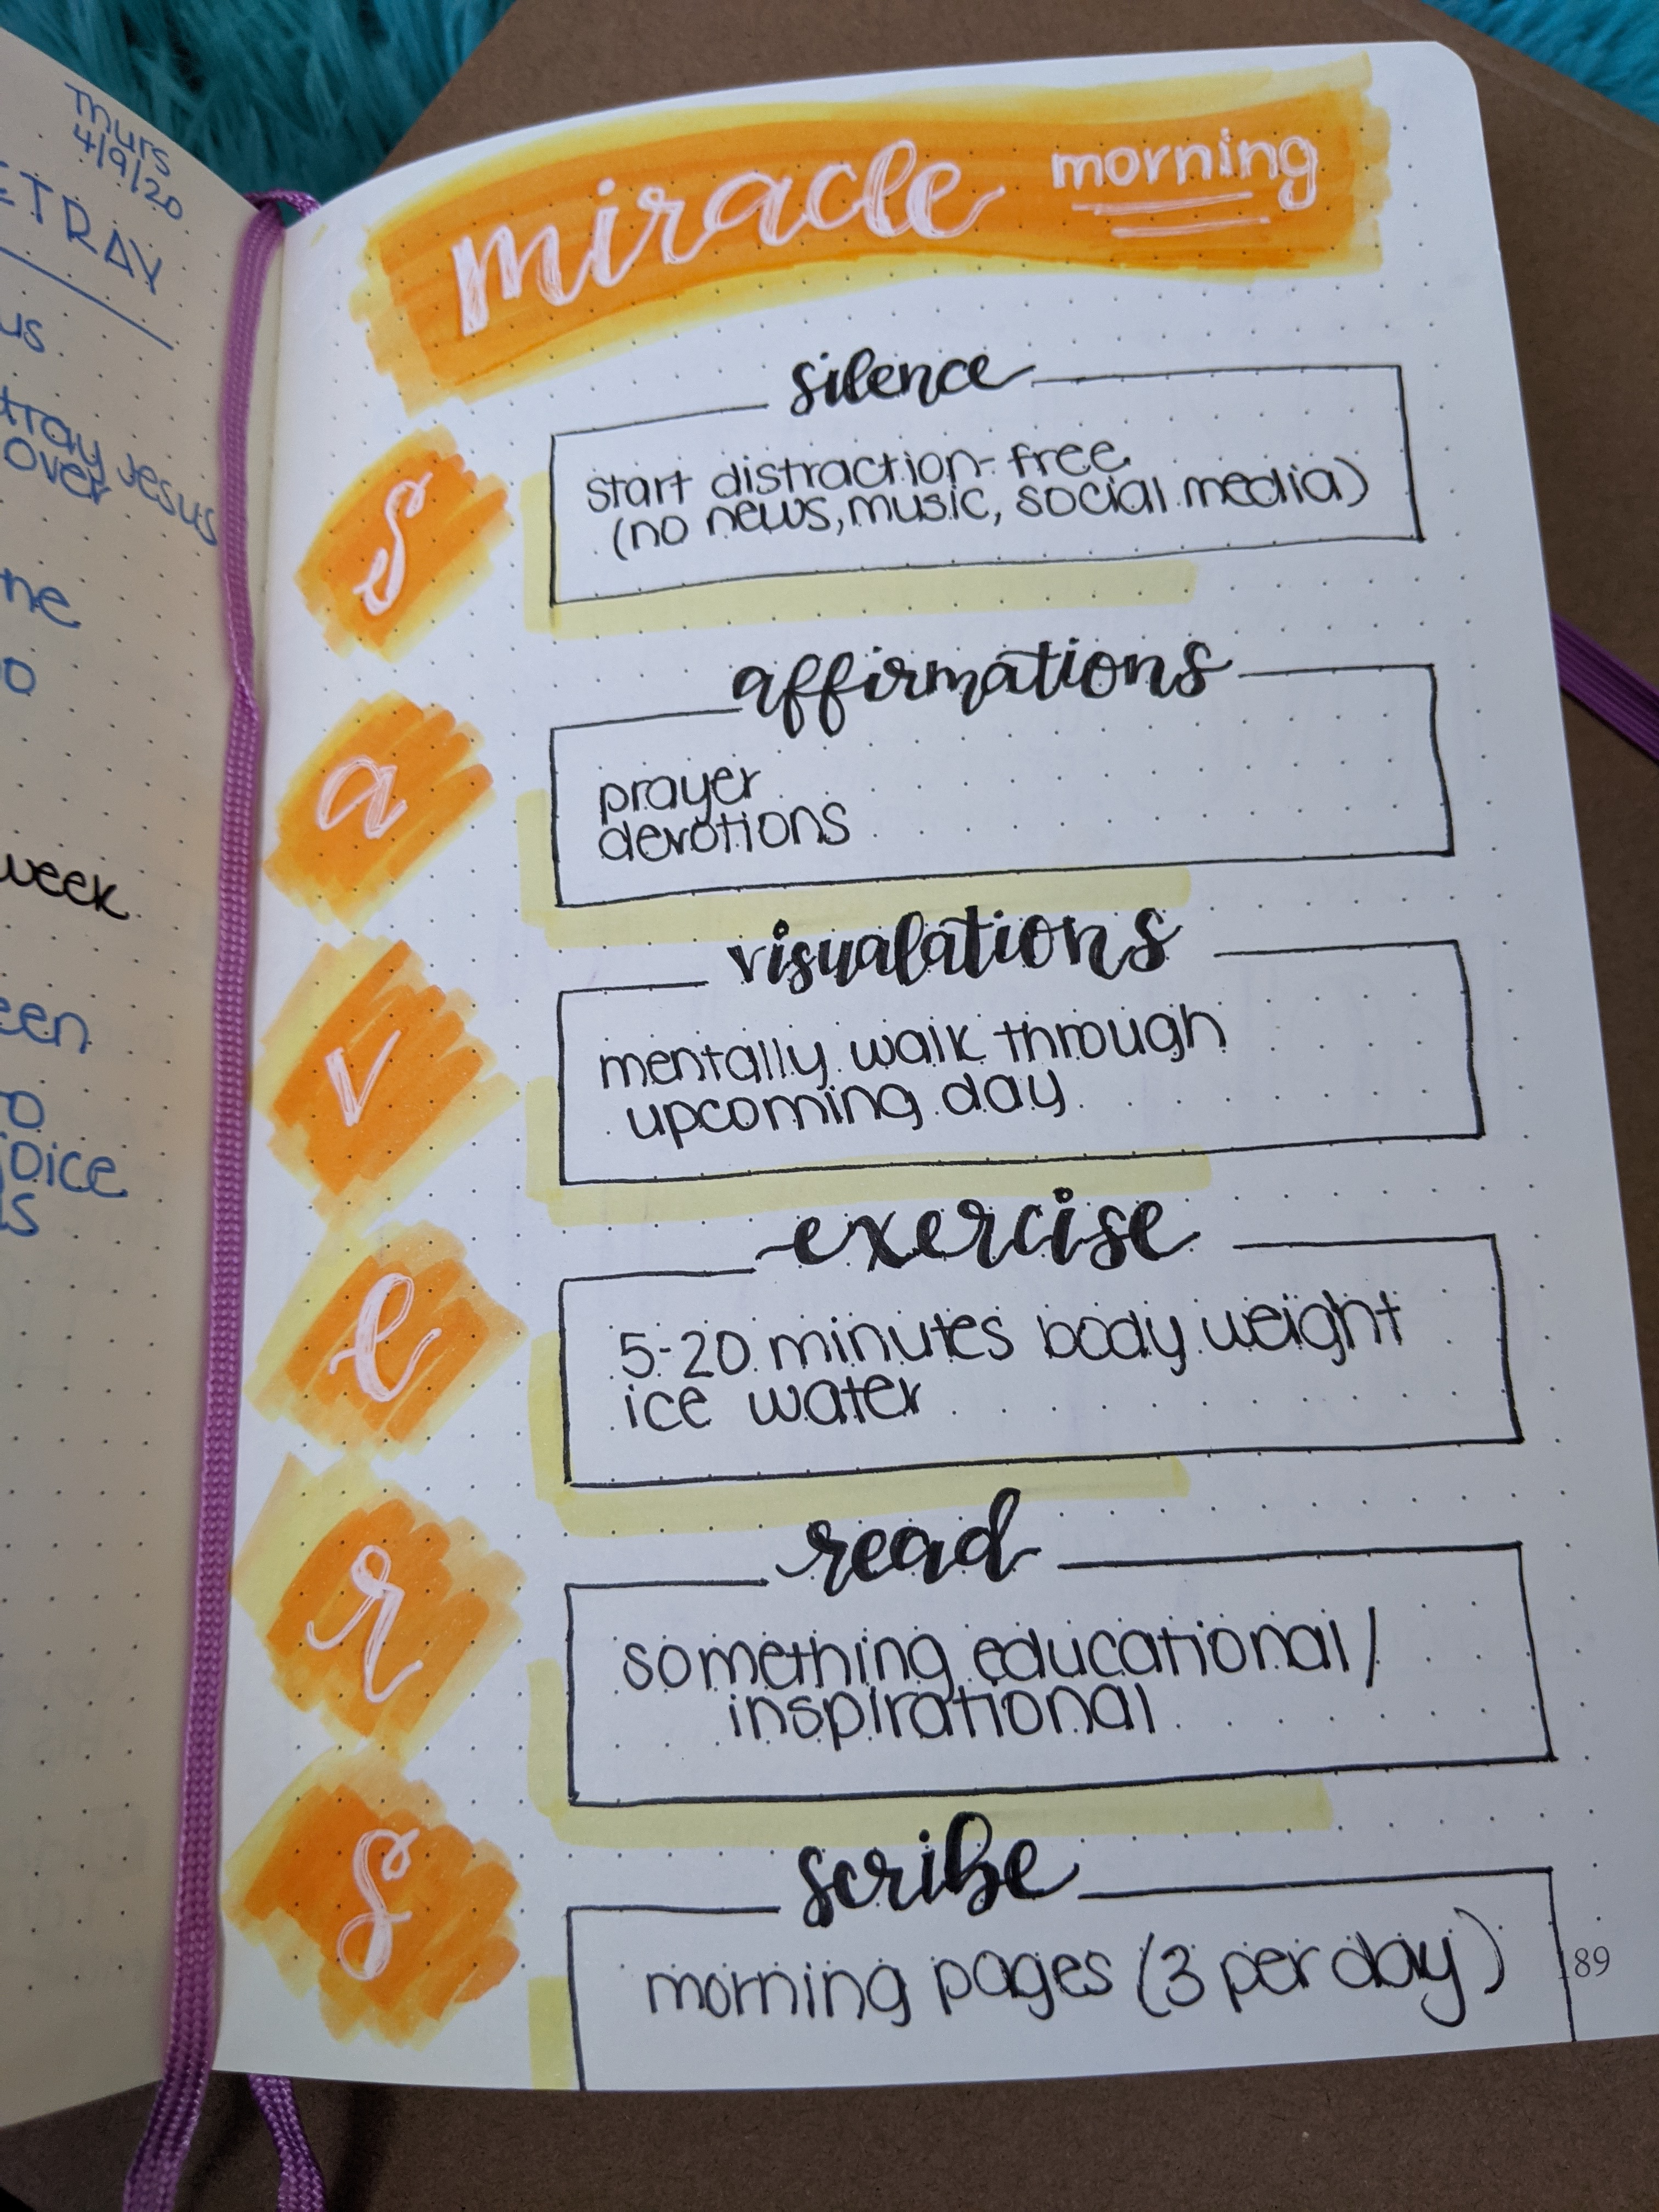 Thurs
4/9/20
ETRAY
us
tray Jesus
over
ne
o
week
een
to
joice
is
miracle morning
s
silence
start distraction-free
(no news, music, social media)
a
affirmations
prayer
devotions
v
visualations
mentally walk through
upcoming day
e
exercise
5-20 minutes body weight
ice water
r
read
something educational/
inspirational
s
scribe
morning pages (3 per day)
189